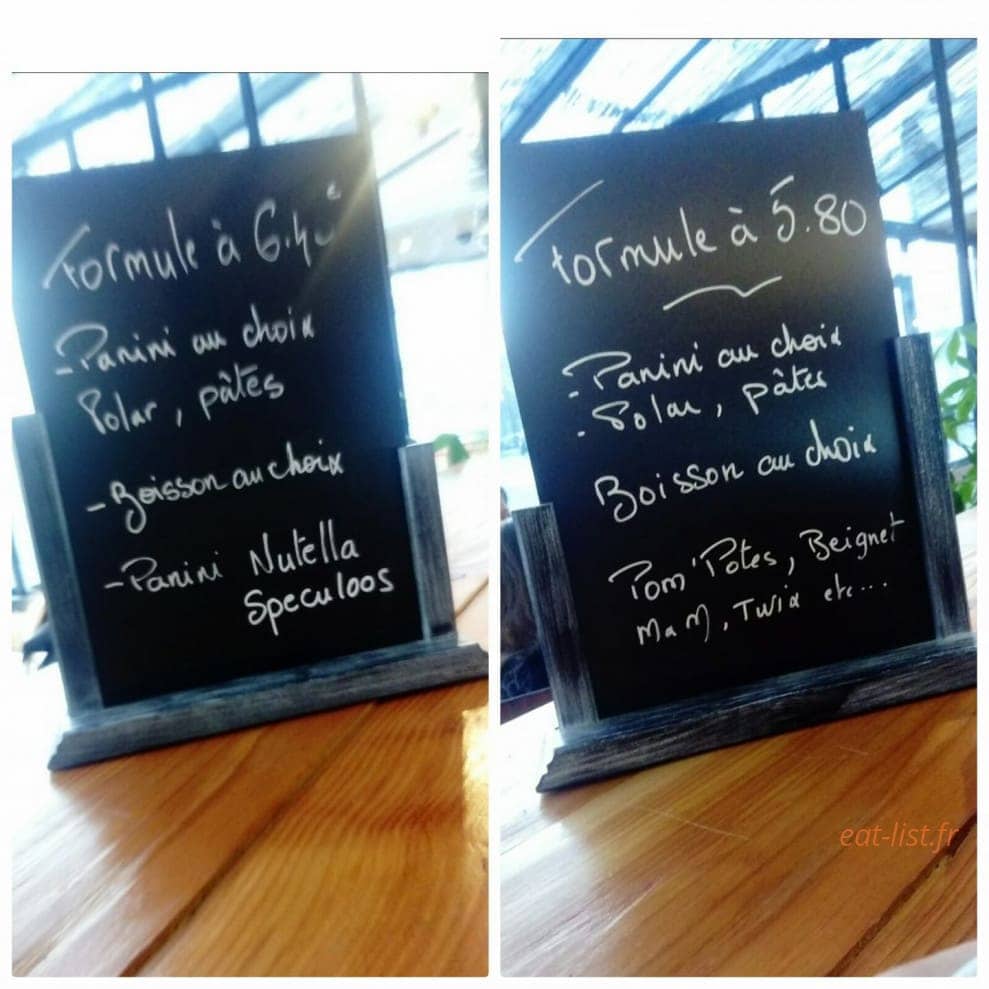 Formule à 6.40 €
- Panini au choix
Polar, pâtes
- Boisson au choix
- Panini Nutella
Speculoos
Formule à 5.80
- Panini au choix
- Polar, pâtes
Boisson au choix
Pom'Potes, Beignet
MaM, Twix etc...
eat-list.fr